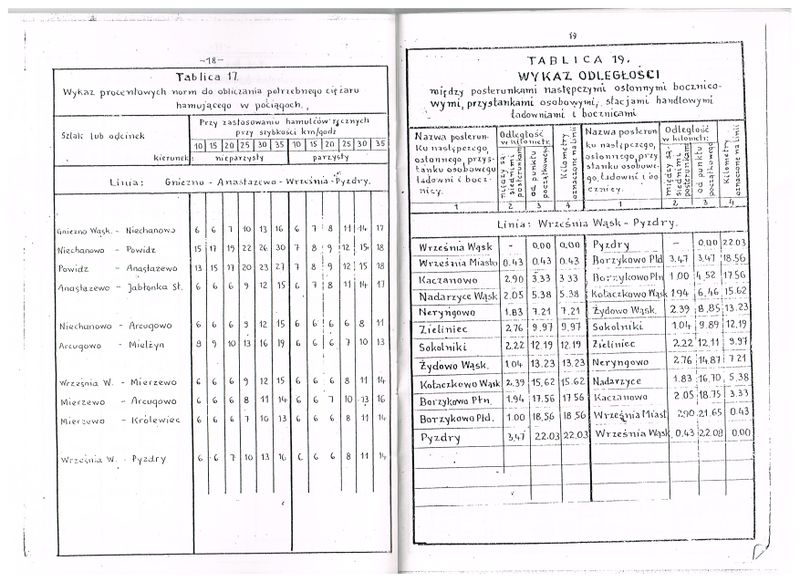 –18–
Tablica 17.
Wykaz procentowych norm do obliczania potrzebnego ciężaru
hamującego w pociągach.
Szlak lub odcinek
Przy zastosowaniu hamulców ręcznych
przy szybkości km/godz
10 15 20 25 30 35 10 15 20 25 30 35
kierunek: nieparzysty parzysty
Linia: Gniezno - Anastazewo - Września - Pyzdry.
Gniezno Wąsk. - Niechanowo 6 6 7 10 13 16 6 7 8 11 14 17
Niechanowo - Powidz 15 17 19 22 26 30 7 8 9 12 15 18
Powidz - Anastazewo 13 15 17 20 23 27 7 8 9 12 15 18
Anastazewo - Jabłonka Sł. 6 6 6 9 12 15 6 7 8 11 14 17
Niechanowo - Arcugowo 6 6 6 9 12 15 6 6 6 6 8 11
Arcugowo - Mielżyn 8 9 10 13 16 19 6 6 6 7 10 13
Września W. - Mierzewo 6 6 6 9 12 15 6 6 6 8 11 14
Mierzewo - Arcugowo 6 6 6 8 11 14 6 6 7 10 13 16
Mierzewo - Królewiec 6 6 6 7 10 13 6 6 6 8 11 14
Września W. - Pyzdry 6 6 7 10 13 16 6 6 6 8 11 14
19
TABLICA 19.
WYKAZ ODLEGŁOŚCI
między posterunkami następczymi osłonnymi bocznico-
wymi, przystankami osobowymi, stacjami handlowymi
ładowniami i bocznicami
Nazwa posterun-
ku następczego,
osłonnego, przys-
tanku osobowego
ładowni i bocz-
nicy.
Odległość
w kilometr.
między są-
siednimi
posterunkami
od punktu
początkowego
Kilometry
oznaczone na linii
Nazwa posterun
ku następczego,
osłonnego, przy
stanku osobowe-
go, ładowni i bo
cznicy.
Odległość
w kilometr.
między są-
siednimi
posterunkami
od punktu
początkowego
Kilometry
oznaczone na linii
1 2 3 4 1 2 3 4
Linia: Września Wąsk - Pyzdry.
Września Wąsk - 0,00 0,00 Pyzdry - 0,00 22.03
Września Miasto 0.43 0.43 0.43 Borzykowo Płd 3.47 3,47 18.56
Kaczanowo 2,90 3.33 3.33 Borzykowo Płn 1.00 4,52 17.56
Nadarzyce Wąsk 2,05 5.38 5.38 Kołaczkowo Wąsk 1.94 6,46 15.62
Neryngowo 1.83 7.21 7.21 Żydowo Wąsk. 2.39 8,85 13.23
Zieliniec 2,76 9.97 9,97 Sokolniki 1.04 9.89 12,19
Sokolniki 2,22 12.19 12,19 Zieliniec 2.22 12,11 9.97
Żydowo Wąsk. 1.04 13.23 13.23 Neryngowo 2.76 14,87 7.21
Kołaczkowo Wąsk 2.39 15,62 15.62 Nadarzyce 1.83 16,70 5.38
Borzykowo Płn. 1.94 17.56 17.56 Kaczanowo 2.05 18.75 3.33
Borzykowo Płd. 1.00 18,56 18,56 Września Miast 2,90 21.65 0.43
Pyzdry 3,47 22.03 22.03 Września Wąsk 0,43 22.08 0.00